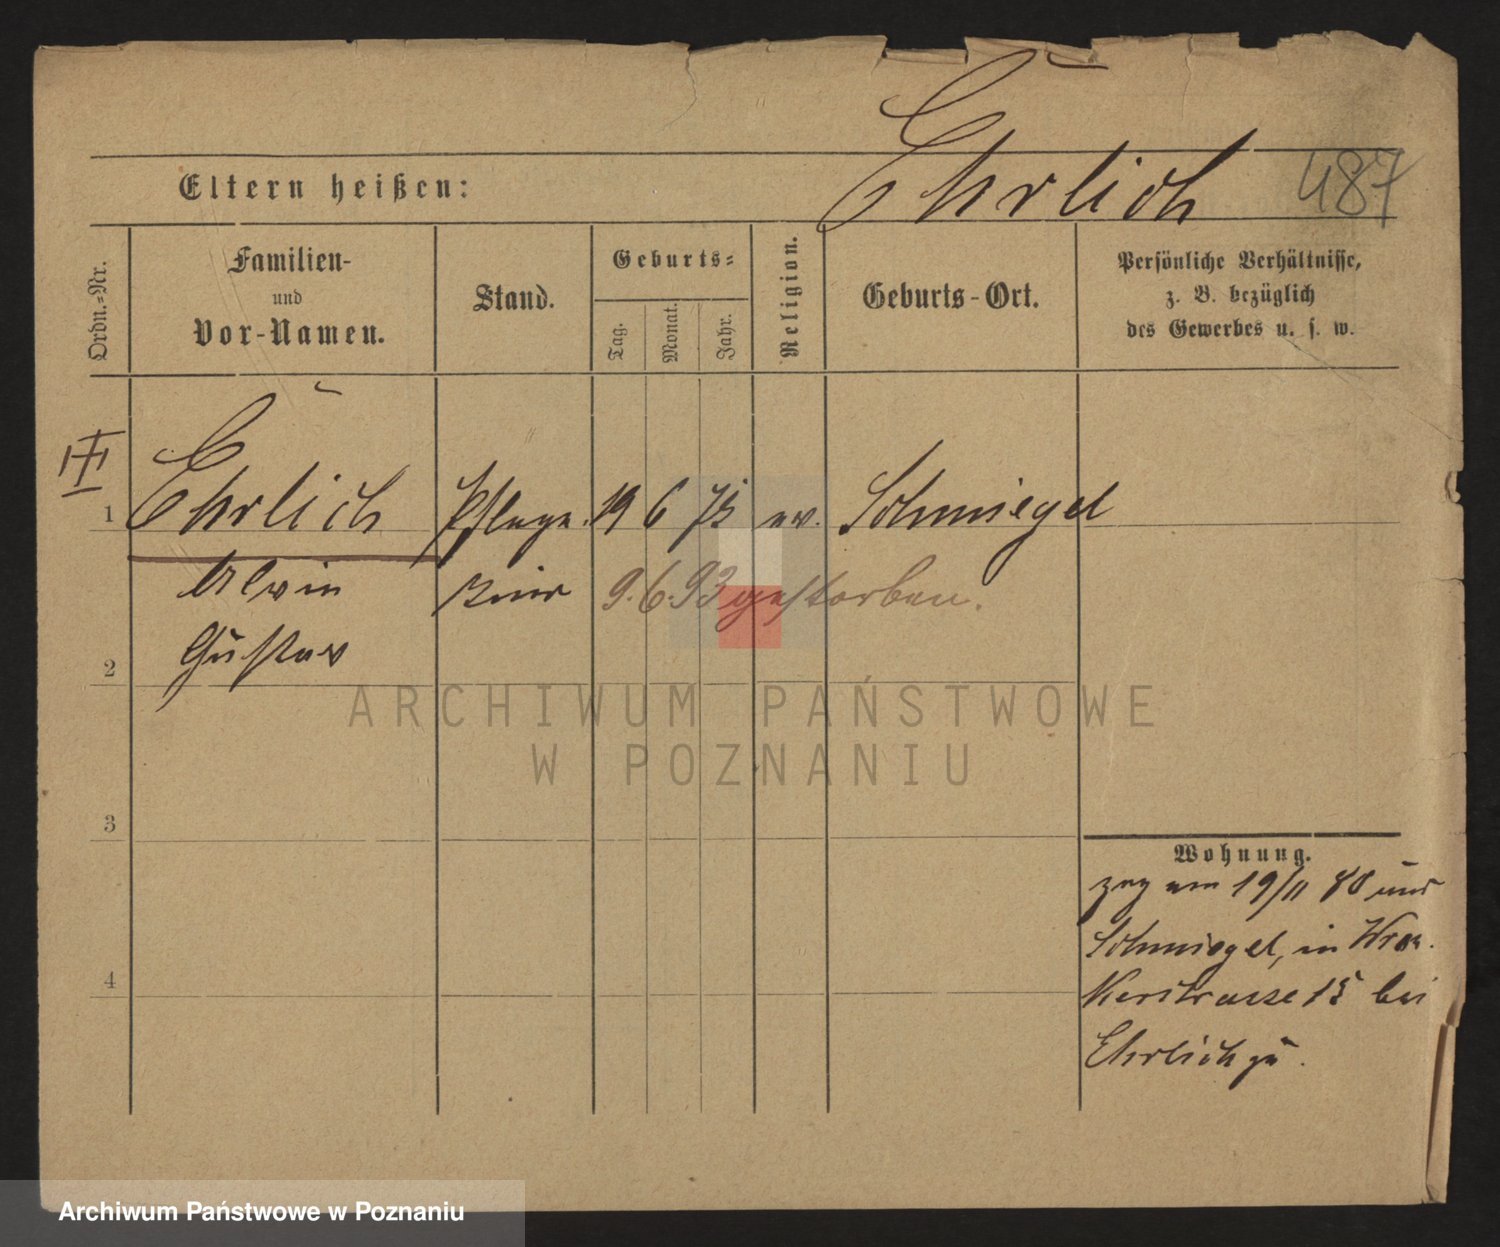 Ehrlich 487
Eltern heißen:
Ordn.-Nr.
Familien-
und
Vor-Namen.
Stand.
Geburts-
Tag.
Monat.
Jahr.
Religion.
Geburts-Ort.
Persönliche Verhältnisse,
z. B. bezüglich
des Gewerbes u. s. w.
III
1 Ehrlich Pflege- 19 6 75 ev. Schmiegel
Alvin kind 9. 6. 93 gestorben.
2 Gustav
ARCHIWUM PAŃSTWOWE
W POZNANIU
3
Wohnung.
zog am 19/11 80 aus
Schmiegel, in Wron-
4 kerstrasse 15 bei
Ehrlich zu.
Archiwum Państwowe w Poznaniu